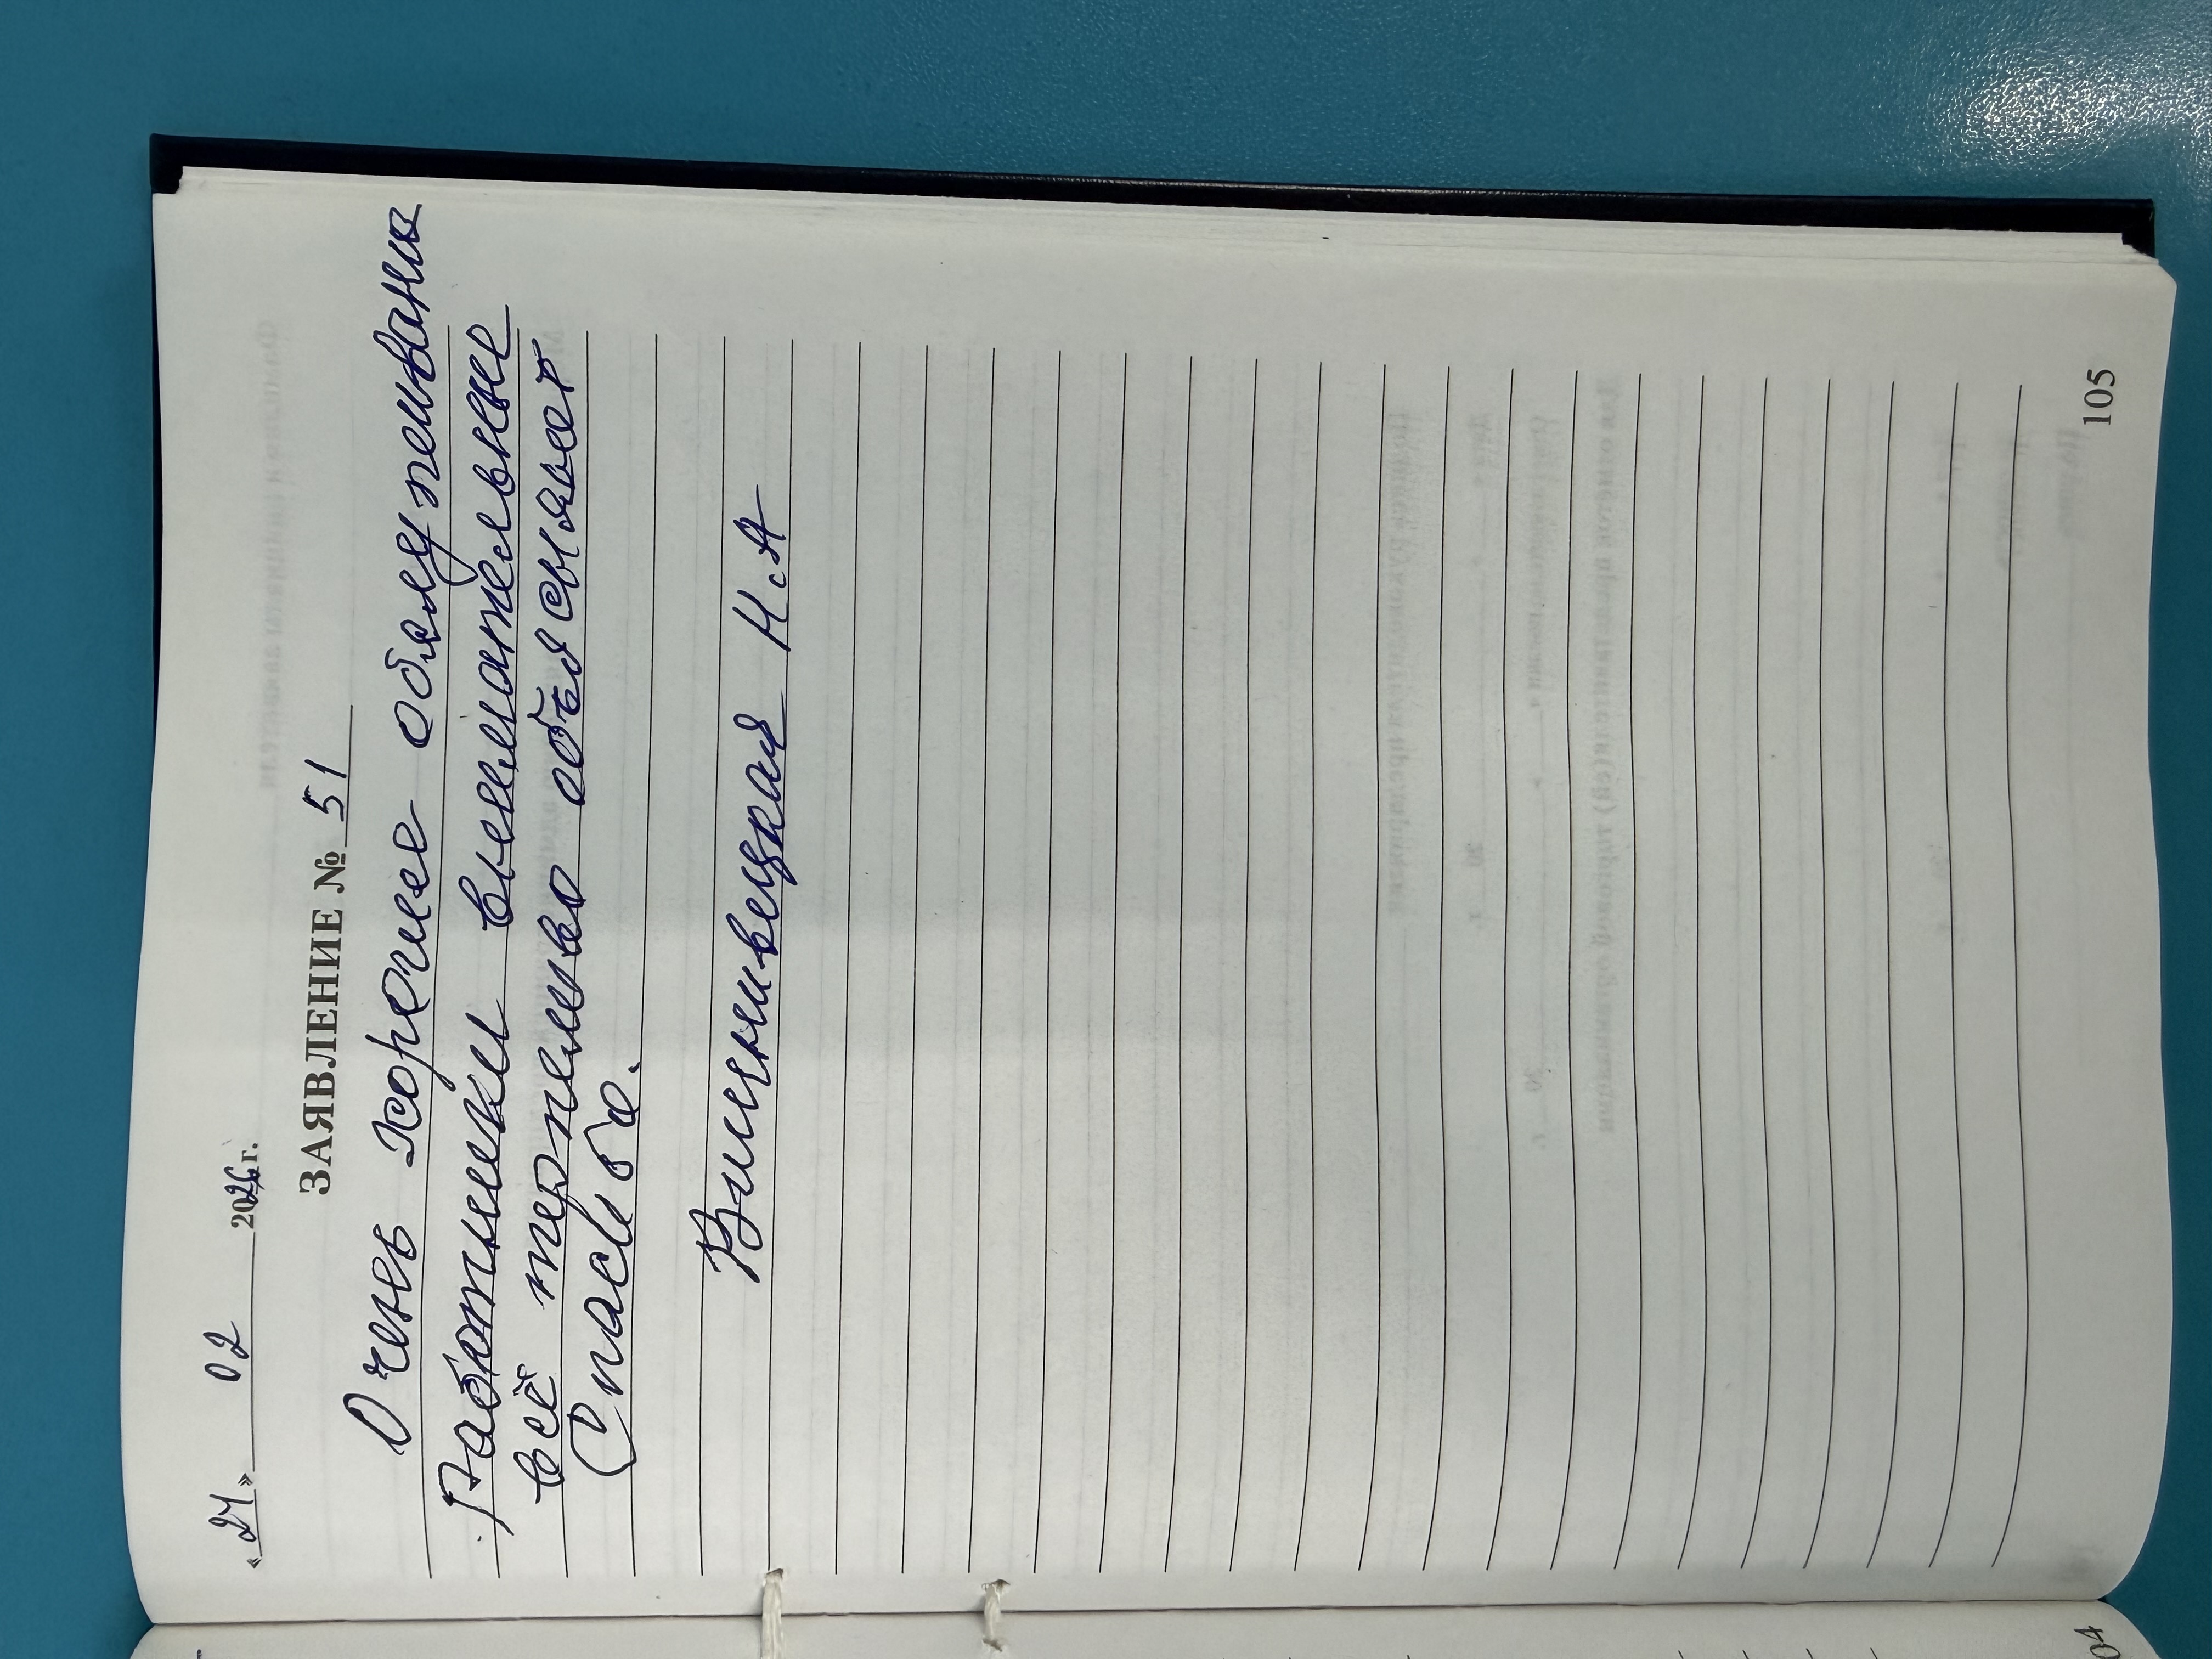 «24» 02 2026 г.
ЗАЯВЛЕНИЕ № 51
Очень хорошее обслуживание
Работники внимательные
всё терпеливо объясняют
Спасибо.
Вишнивецкая Н.А
105
04